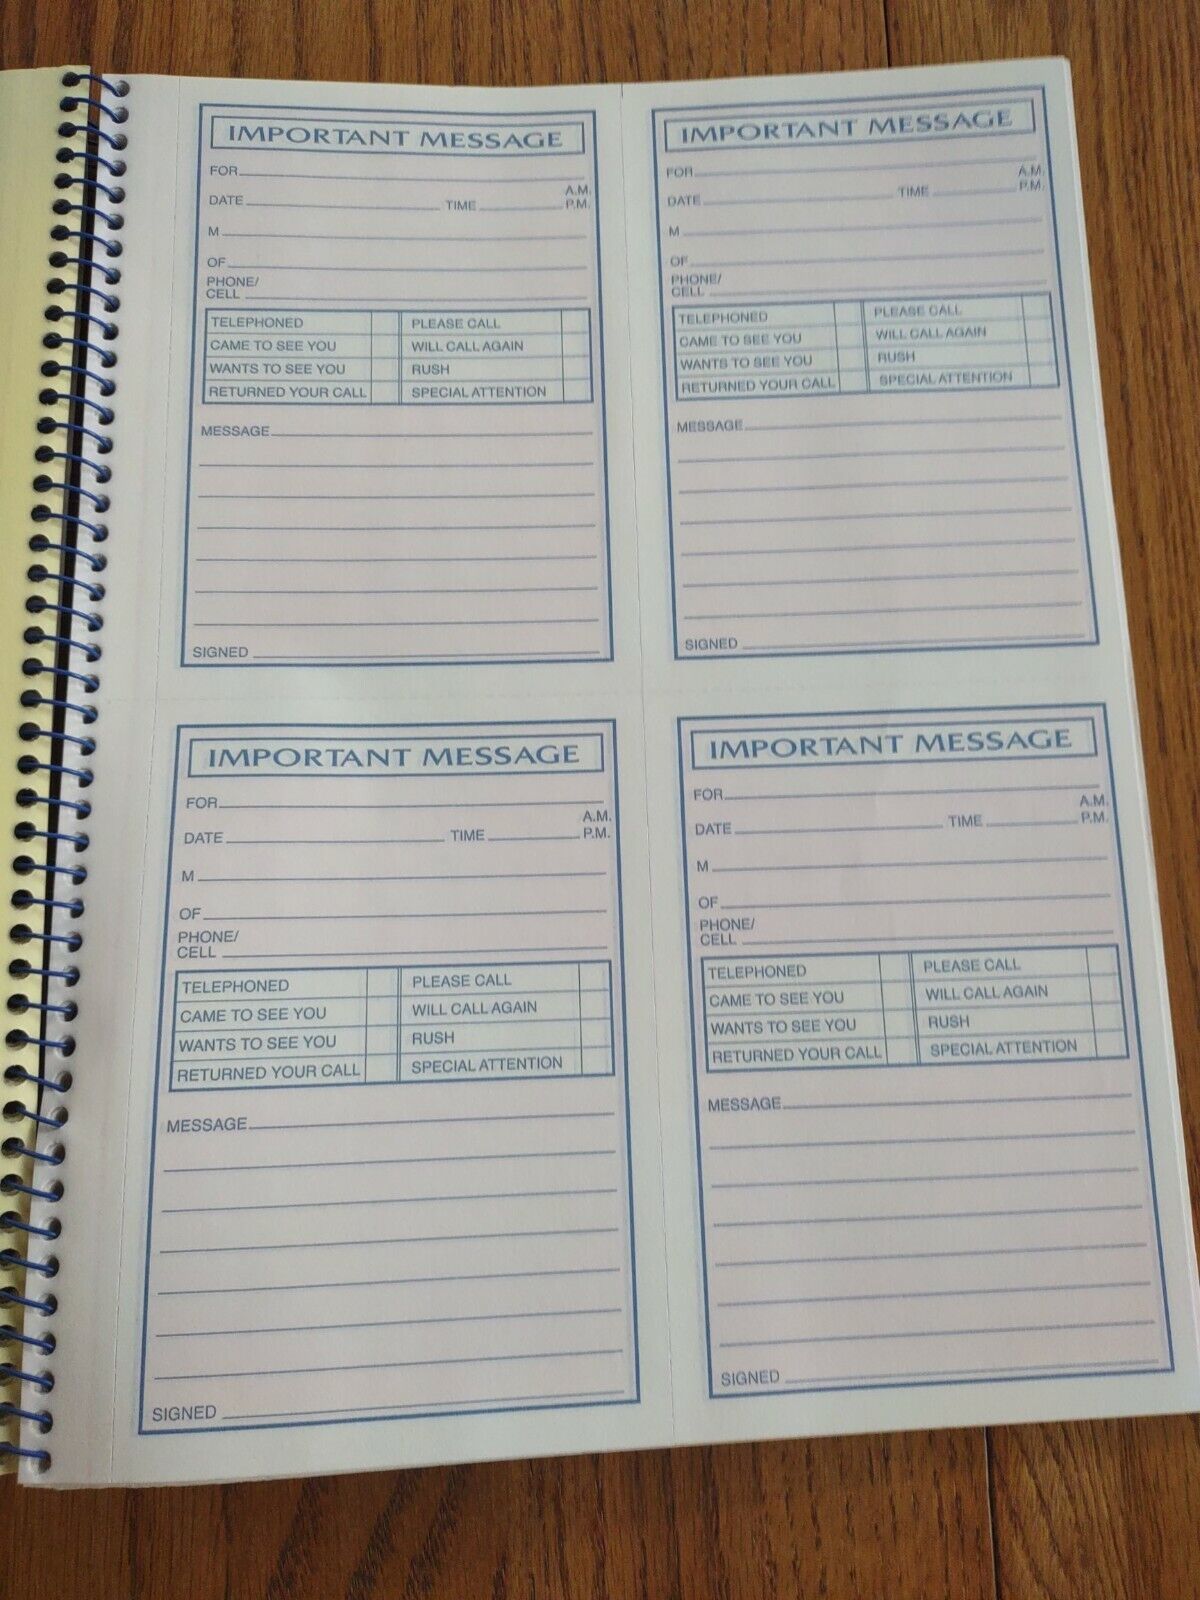 IMPORTANT MESSAGE
FOR
A.M.
DATE TIME P.M.
M
OF
PHONE/
CELL
TELEPHONED PLEASE CALL
CAME TO SEE YOU WILL CALL AGAIN
WANTS TO SEE YOU RUSH
RETURNED YOUR CALL SPECIAL ATTENTION
MESSAGE
SIGNED
IMPORTANT MESSAGE
FOR
A.M.
DATE TIME P.M.
M
OF
PHONE/
CELL
TELEPHONED PLEASE CALL
CAME TO SEE YOU WILL CALL AGAIN
WANTS TO SEE YOU RUSH
RETURNED YOUR CALL SPECIAL ATTENTION
MESSAGE
SIGNED
IMPORTANT MESSAGE
FOR
A.M.
DATE TIME P.M.
M
OF
PHONE/
CELL
TELEPHONED PLEASE CALL
CAME TO SEE YOU WILL CALL AGAIN
WANTS TO SEE YOU RUSH
RETURNED YOUR CALL SPECIAL ATTENTION
MESSAGE
SIGNED
IMPORTANT MESSAGE
FOR
A.M.
DATE TIME P.M.
M
OF
PHONE/
CELL
TELEPHONED PLEASE CALL
CAME TO SEE YOU WILL CALL AGAIN
WANTS TO SEE YOU RUSH
RETURNED YOUR CALL SPECIAL ATTENTION
MESSAGE
SIGNED